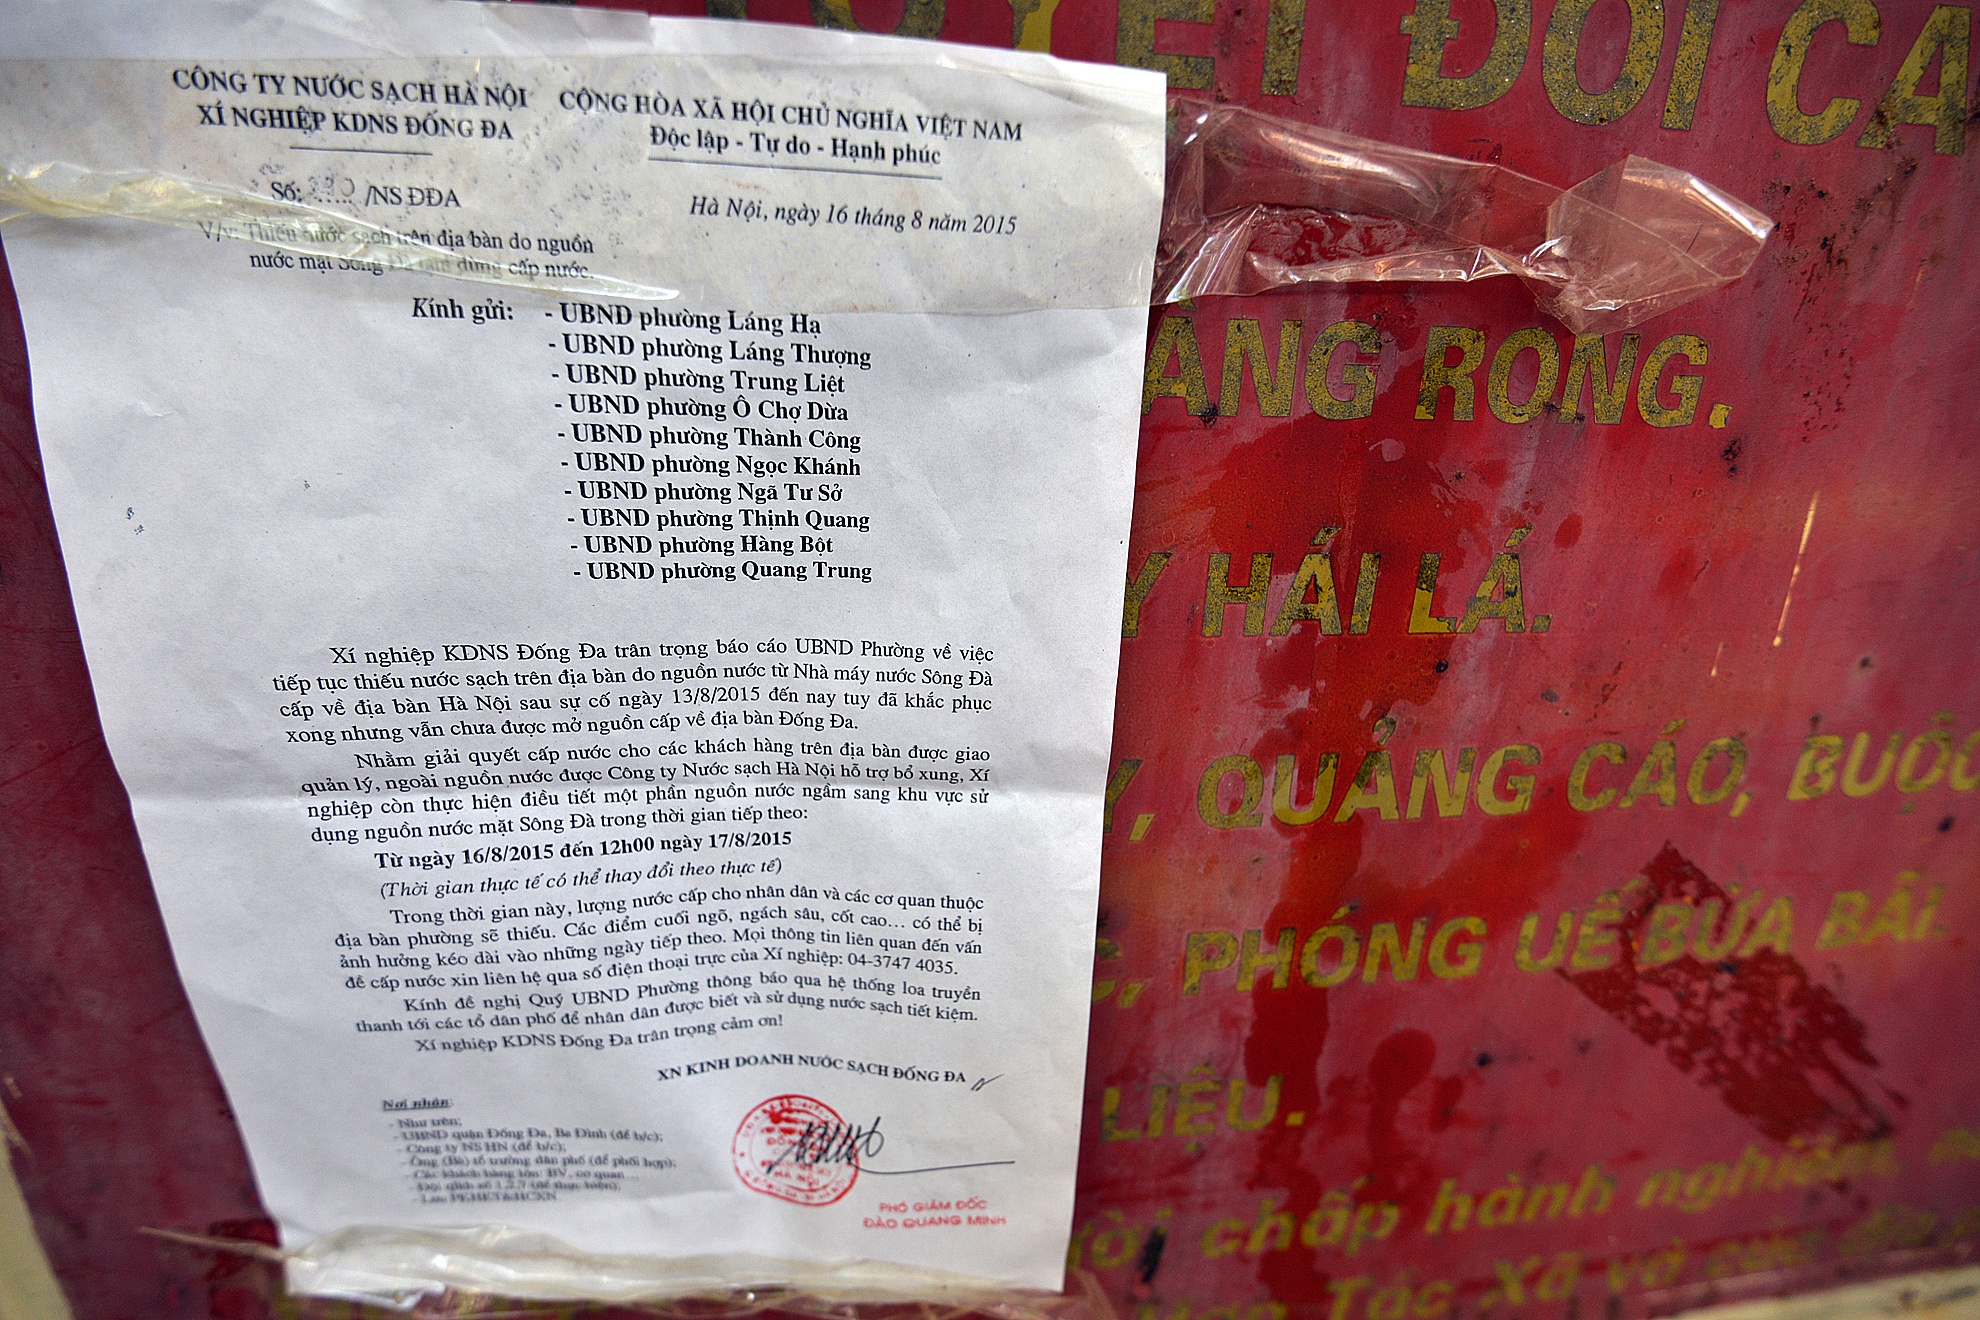 CÔNG TY NƯỚC SẠCH HÀ NỘI
XÍ NGHIỆP KDNS ĐỐNG ĐA
CỘNG HÒA XÃ HỘI CHỦ NGHĨA VIỆT NAM
Độc lập - Tự do - Hạnh phúc
Số: /NS ĐĐA
Hà Nội, ngày 16 tháng 8 năm 2015
V/v: Thiếu nước sạch trên địa bàn do nguồn
nước mặt Sông Đà tạm dừng cấp nước.
Kính gửi: - UBND phường Láng Hạ
- UBND phường Láng Thượng
- UBND phường Trung Liệt
- UBND phường Ô Chợ Dừa
- UBND phường Thành Công
- UBND phường Ngọc Khánh
- UBND phường Ngã Tư Sở
- UBND phường Thịnh Quang
- UBND phường Hàng Bột
- UBND phường Quang Trung
Xí nghiệp KDNS Đống Đa trân trọng báo cáo UBND Phường về việc
tiếp tục thiếu nước sạch trên địa bàn do nguồn nước từ Nhà máy nước Sông Đà
cấp về địa bàn Hà Nội sau sự cố ngày 13/8/2015 đến nay tuy đã khắc phục
xong nhưng vẫn chưa được mở nguồn cấp về địa bàn Đống Đa.
Nhằm giải quyết cấp nước cho các khách hàng trên địa bàn được giao
quản lý, ngoài nguồn nước được Công ty Nước sạch Hà Nội hỗ trợ bổ xung, Xí
nghiệp còn thực hiện điều tiết một phần nguồn nước ngầm sang khu vực sử
dụng nguồn nước mặt Sông Đà trong thời gian tiếp theo:
Từ ngày 16/8/2015 đến 12h00 ngày 17/8/2015
(Thời gian thực tế có thể thay đổi theo thực tế)
Trong thời gian này, lượng nước cấp cho nhân dân và các cơ quan thuộc
địa bàn phường sẽ thiếu. Các điểm cuối ngõ, ngách sâu, cốt cao... có thể bị
ảnh hưởng kéo dài vào những ngày tiếp theo. Mọi thông tin liên quan đến vấn
đề cấp nước xin liên hệ qua số điện thoại trực của Xí nghiệp: 04-3747 4035.
Kính đề nghị Quý UBND Phường thông báo qua hệ thống loa truyền
thanh tới các tổ dân phố để nhân dân được biết và sử dụng nước sạch tiết kiệm.
Xí nghiệp KDNS Đống Đa trân trọng cảm ơn!
XN KINH DOANH NƯỚC SẠCH ĐỐNG ĐA
Nơi nhận:
- Như trên;
- UBND quận Đống Đa, Ba Đình (để b/c);
- Công ty NS HN (để b/c);
- Ông (Bà) tổ trưởng dân phố (để phối hợp);
- Các khách hàng lớn: BV, cơ quan...
- Đội qlkh số 1,2,7 (để thực hiện);
PHÓ GIÁM ĐỐC
ĐÀO QUANG MINH
TUYỆT ĐỐI CẤ
ÀNG RONG.
Y HÁI LÁ.
Y, QUẢNG CÁO, BUỘC
C, PHÓNG UẾ BỪA BÃI.
LIỆU.
chấp hành nghiêm
Tác Xã và